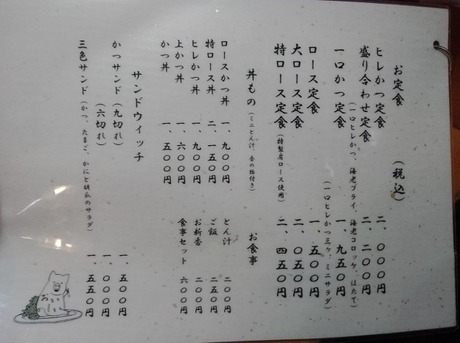 お定食 (税込)
ヒレかつ定食 二、000円
盛り合わせ定食 二、二00円
(一口ヒレかつ、海老フライ、海老コロッケ、ほたて)
一口かつ定食 一、九五0円
(一口ヒレかつ三ケ、ミニサラダ)
ロース定食 一、五00円
大ロース定食 二、0五0円
特ロース定食 二、四五0円
(特製肩ロース使用)
丼もの
(ミニとん汁、香の物付き)
ロースかつ丼 一、九00円
特ロース丼 二、一五0円
ヒレかつ丼 一、九00円
上かつ丼 一、六00円
かつ丼 一、五00円
お食事
とん汁 二00円
ご飯 二五0円
お新香 二00円
食事セット 六00円
サンドウィッチ
かつサンド (九切れ) 一、五00円
(六切れ) 一、000円
三色サンド (かつ、たまご、かにと胡瓜のサラダ) 一、五五0円